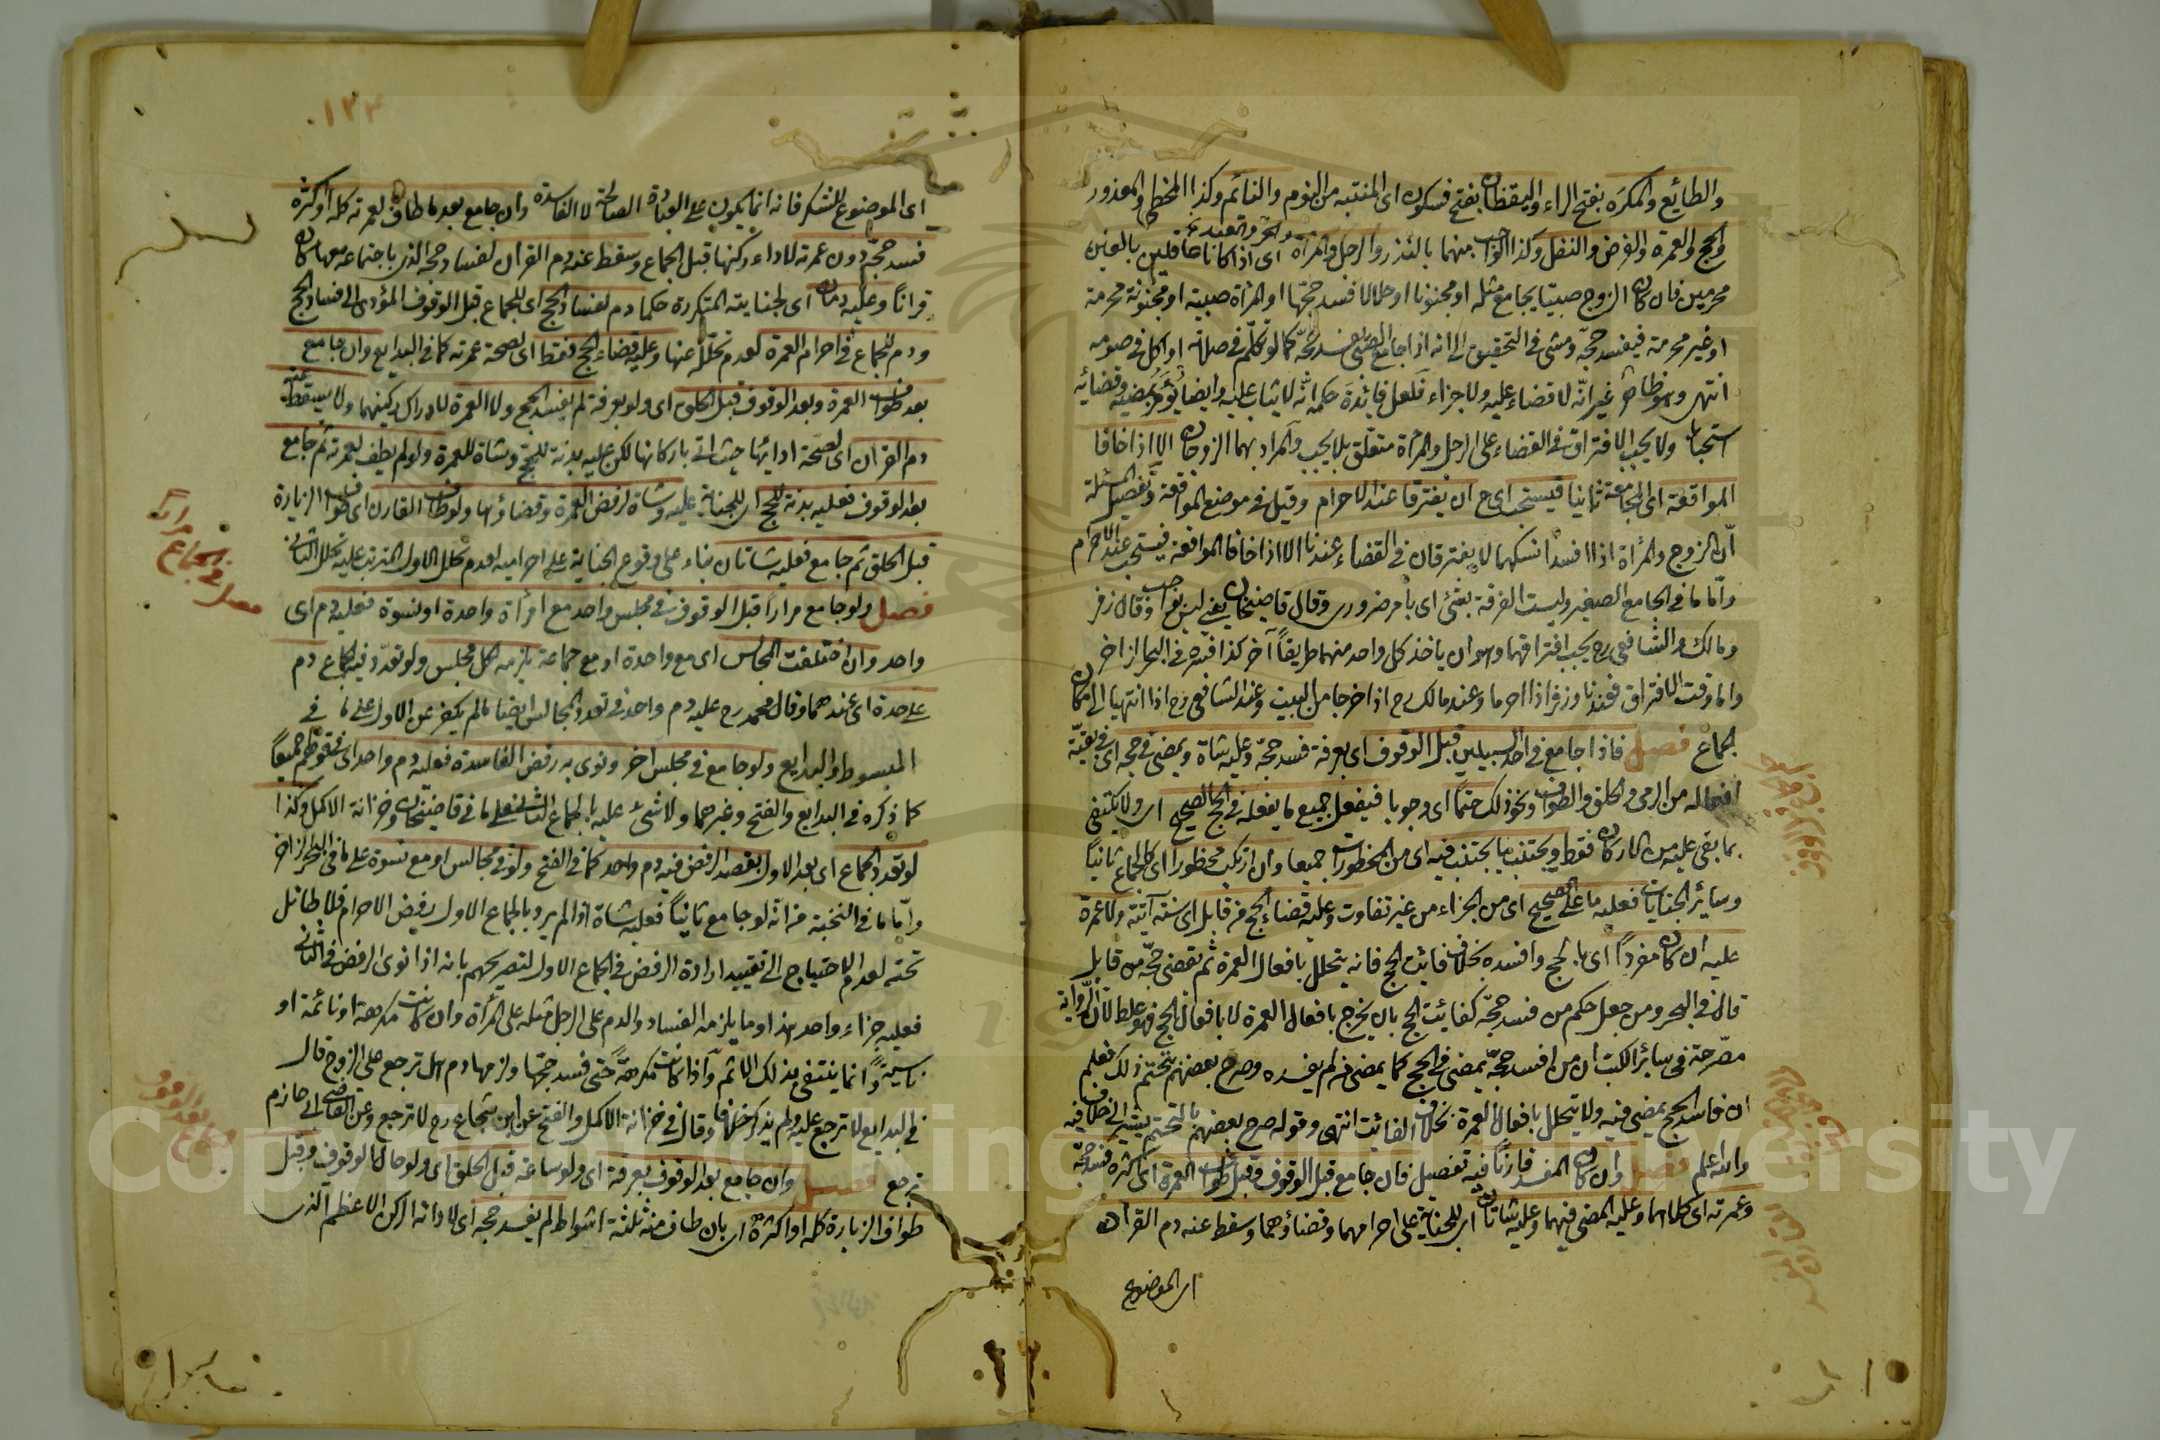 والطايع والمكرَه بفتح الراء واليقظان بفتح فسكون اى المنتبه من النوم والنائم وكذا المخطى والمعذور
والحر والعبد
والحج والعمرة والفرض والنفل وكذا الواجب منهما بالنذر والرجل والمرأة اى اذا كانا عاقلين بالغين
محرمين فان كان الزوج صبيّا يجامع مثله او مجنونا او حلالا فسد حجّها او المرأة صبية او مجنونة محرمة
او غير محرمة فيفسد حجّه ومشى فى التحقيق الى انه اذا جامع الصبى يفسد حجّه كما لو تكلّم فى صلاة او اكل فى صومه
انتهى وهو ظاهر غير انّه لا قضاء عليه ولا جزاء فلعل فائدة حكمه انّه لا يثاب عليه وايضا يؤمر بمضيه وقضائه
استحبابا ولا يجب الافتراق فى القضاء على الرجل والمرأة متعلّق بلا يجب والمراد بهما الزوجان الا اذا خافا
المواقعة اى المجامعة ثانيا فيستحب اى ح ان يفترقا عند الاحرام وقيل فى موضع المواقعة وتفصيل المسئلة
انّ الزوج والمرأة اذا افسدا نسكهما لا يفترقان فى القضاء عندنا الا اذا خافا المواقعة فيستحب عند الاحرام
وامّا ما فى الجامع الصغير وليست الفرقة بشئ اى بامر ضرورى وقال قاضيخان يعنى ليس بواجب وقال زفر
ومالك والشافعى رح يجب افتراقهما وهو ان ياخذ كل واحد منهما طريقاً آخر كذا فسره فى البحر الزاخر
واما وقت الافتراق فعندنا وزفر اذا احرما وعند مالك رح اذا خرجا من البيت وعند الشافعى رح اذا انتهيا الى مكان
الجماع فصل فاذا جامع فى احد السبيلين قبل الوقوف اى بعرفة فسد حجّه وعليه شاة ويمضى فى حجه اى فى بقيّة
افعاله من الرمى والحلق والطواف ونحو ذلك حتمًا اى وجوبا فيفعل جميع ما يفعله فى الحج الصحيح اى ولا يكتفى
بما بقى عليه من الاركان فقط ويجتنب ما يجتنب فيه اى من المحظورات جميعا وان ارتكب محظورا اى كالجماع ثانياً
وسائر الجنايات فعليه ما على الصحيح اى من الجزاء من غير تفاوت وعليه قضاء الحج من قابل اى سنة آتية ولا عمرة
عليه ان كان مفرداً اى بالحج وافسده بخلاف فائت الحج فانه يتحلل بافعال العمرة ثم يقضى حجّه من قابل
قال فى البحر ومن جعل حكم من فسد حجّه كفائت الحج بان يخرج بافعال العمرة لا بافعال الحج فهو غلط لان الرواية
مصرّحة فى سائر الكتب ان من افسد حجّه يمضى فى الحج كما يمضى من لم يفسده وصرح بعضهم بتحتّم ذلك فعلم
ان فاسد الحج يمضى فيه ولا يتحلل بافعال العمرة بخلاف الفائت انتهى وقوله صرح بعضهم بالتحتّم يشير الى خلاف فيه
والله اعلم فصل وان كان المفسد قارناً ففيه تفصيل فان جامع قبل الوقوف وقبل طواف العمرة اى اكثره فسد حجّه
وعمرته اى كلاهما وعليه المضى فيهما وعليه شاتان اى للجناية على احرامهما وقضاؤهما وسقط عنه دم القران
اى الموضوع
١٢٤
اى الموضوع للشكر فانه انما يكون على العبادة الصالحة لا الفاسدة وان جامع بعد ما طاف لعمرته كله او اكثره
فسد حجّه دون عمرته لاداء ركنها قبل الجماع وسقط عنه دم القران لفساد حجه الذى باجتماعه معها كان
قراناً وعليه دمان اى لجنايته المتكررة حكما دم لفساد الحج اى للجماع قبل الوقوف المؤدى الى فساد الحج
ودم للجماع فى احرام العمرة لعدم تحلّله عنها وعليه قضاء الحج فقط اى لصحة عمرته كما فى البدايع وان جامع
بعد طواف العمرة وبعد الوقوف قبل الحلق اى ولو بعرفة لم يفسد الحج ولا العمرة لادراك ركنيهما ولا يسقط عنه
دم القران اى لصحّة ادائهما حيث اتى باركانهما لكن عليه بدنة للحج وشاة للعمرة ولو لم يطف لعمرته ثم جامع
بعد الوقوف فعليه بدنة للحج اى للجناية عليه وشاة لرفض العمرة وقضاؤها ولو طاف القارن اى طواف الزيارة
قبل الحلق ثم جامع فعليه شاتان بناء على وقوع الجناية على احراميه لعدم تحلل الاول المترتب عليه تحلل الثانى
فصل ولو جامع مراراً قبل الوقوف فى مجلس واحد مع امرأة واحدة او نسوة فعليه دم اى
واحد وان اختلفت المجالس اى مع واحدة او مع جماعة يلزمه لكل مجلس ولو تعدّد فيه الجماع دم
على حدة اى عندهما وقال محمد رح عليه دم واحد فى تعدد المجالس ايضا ما لم يكفر عن الاول على ما فى
المبسوط والبدايع ولو جامع فى مجلس اخر ونوى به رفض الفاسدة فعليه دم واحد اى فى قولهم جميعاً
كما ذكره فى البدايع والفتح وغيرهما ولا شئ عليه بالجماع الثانى على ما فى قاضيخان وخزانة الاكمل وكذا
لو تعدد الجماع اى بعد الاول بقصد الرفض فيه دم واحد كما فى الفتح ولو فى مجالس او مع نسوة على ما فى البحر الزاخر
وامّا ما فى النخبة من انّه لو جامع ثانياً فعليه شاة اذا لم يرد بالجماع الاول رفض الاحرام فلا طائل
تحته لعدم الاحتياج الى تقييد ارادة الرفض فى الجماع الاول لتصريحهم بانه اذا نوى الرفض فى الثانى
فعليه جزاء واحد هذا وما يلزمه الفساد والدم على الرجل مثله على المرأة وان كانت مكرهة او نائمة او
ناسية وانما ينتفى بذلك الاثم واذا كانت مكرهة حتى فسد حجّها ولزمها دم هل ترجع على الزوج قال
فى البدايع لا ترجع عليه ولم يذكر خلافا وقال فى خزانة الاكمل والفتح عن ابن شجاع رح لا ترجع وعن القاضى ابى حازم
ترجع فصل وان جامع بعد الوقوف بعرفة اى ولو ساعة قبل الحلق اى ولو حال الوقوف وقبل
طواف الزيارة كله او اكثره اى بان طاف منه ثلثة اشواط لم يفسد حجه اى لاداء الركن الاعظم الذى
Copyright © King Saud University